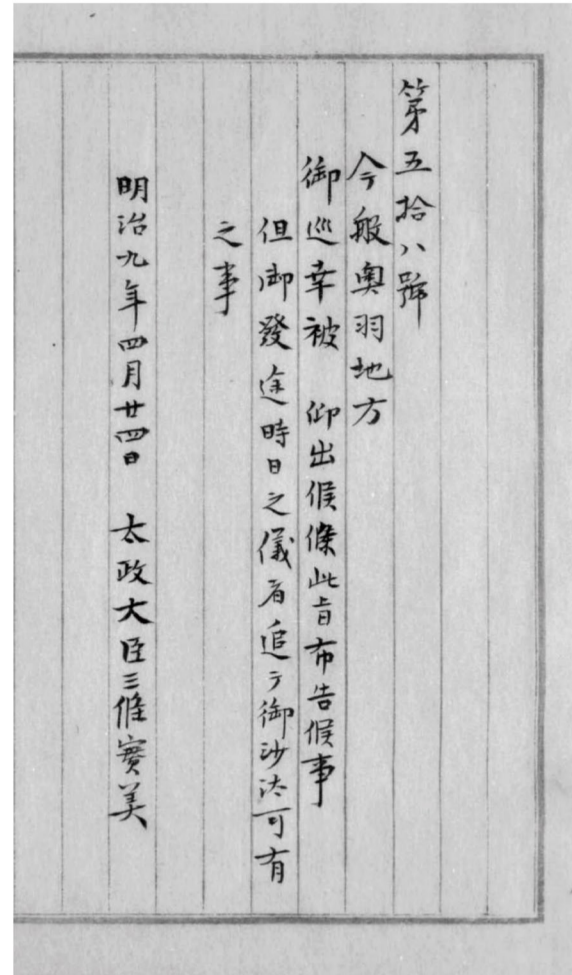 第五拾八號
今般奧羽地方
御巡幸被　仰出候條此旨布告候事
但御發途時日之儀者追テ御沙汰可有
之事
明治九年四月廿四日　太政大臣三條實美